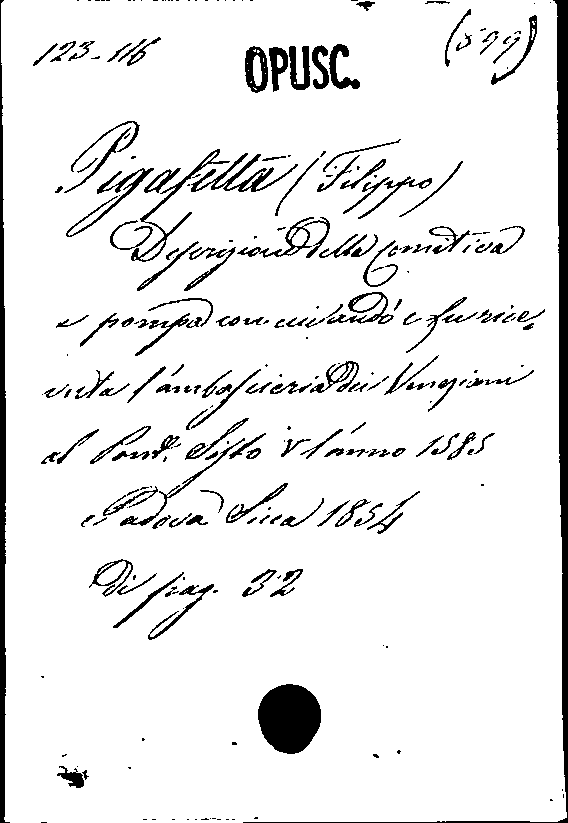 123-116 OPUSC. (599)
Pigafetta (Filippo)
Descrizione della comitiva
e pompa con cui andò e fu rice-
vuta l'ambasceria dei Veneziani
al Pont. Sisto V l'anno 1585
Padova Sicca 1854
Di pag. 32